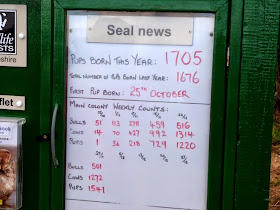 Seal news
PUPS BORN THIS YEAR: 1705
TOTAL NUMBER OF PUPS BORN LAST YEAR: 1676
FIRST PUP BORN: 25TH OCTOBER
MAIN COLONY WEEKLY COUNTS:
BULLS 51 113 278 459 516
COWS 14 70 127 992 1314
PUPS 1 36 218 729 1220
BULLS 501
COWS 1272
PUPS 1541
life
STS
shire
flet